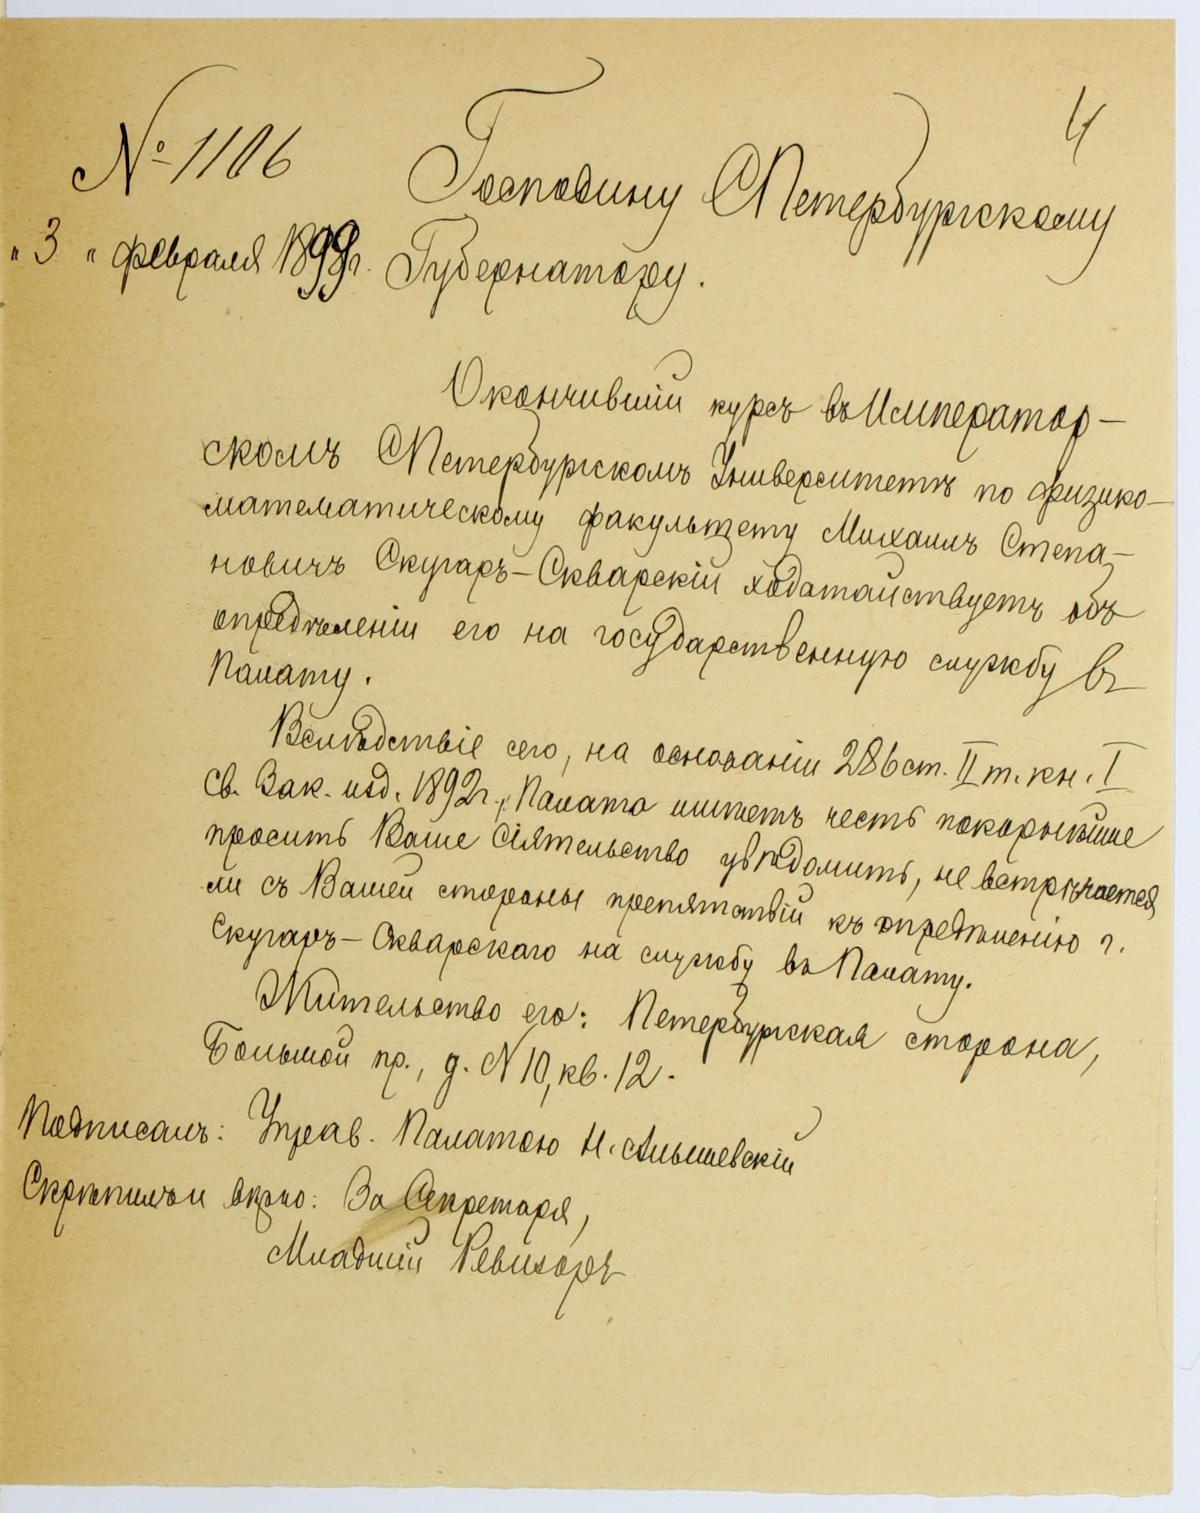 4
№ 1106
Господину СПетербургскому
"3" февраля 1899г. Губернатору.
Окончившій курсъ въ Император-
скомъ СПетербургскомъ Университетѣ по физико-
математическому факультету Михаилъ Степа-
новичъ Скугаръ-Скварскій ходатайствуетъ объ
опредѣленіи его на государственную службу въ
Палату.
Вслѣдствіе сего, на основаніи 286 ст. II т. кн. I
Св. Зак. изд. 1892 г., Палата имѣетъ честь покорнѣйше
просить Ваше Сіятельство увѣдомить, не встрѣчается
ли съ Вашей стороны препятствій къ опредѣленію г.
Скугаръ-Скварскаго на службу въ Палату.
Жительство его: Петербургская сторона,
Большой пр., д. N 10, кв. 12.
Подписалъ: Управ. Палатою Н.
Скрѣпилъ и вѣрно: За Секретаря,
Младшій Ревизоръ